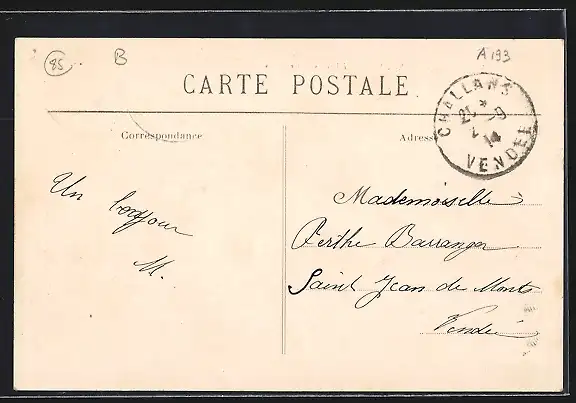 85
B
A 193
CARTE POSTALE
Correspondance
Adresse
CHALLANS
21 -9
14
VENDÉE
Un bonjour
M.
Mademoiselle
Berthe Barranger
Saint Jean de Monts
Vendée